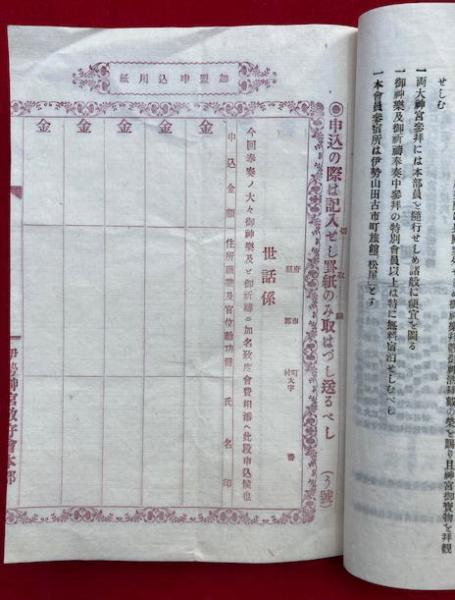 せしむ
一兩大神宮參拜には本部員を隨行せしめ諸般に便宜を圖る
一御神樂及御祈禱奉奏中參拜の特別會員以上は特に無料宿泊せしむべし
一本會員參宿所は伊勢山田古市町旅館「松屋」とす
◉申込の際は記入せし罫紙のみ取はづし送るべし
(う號)
加盟申込用紙
府縣
市郡
町村大字
番
世話係
今回奉奏ノ大々御神樂及ヒ御祈禱ニ加名致度會費相添ヘ此段申込候也
申込金額
住所職業及官位勳功爵
氏名印
金
金
金
金
金
伊勢神宮敬府會本部